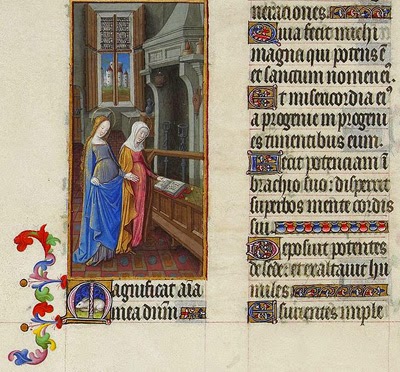 Magnificat aīa
mea dnm̄
nerationes.
Quia fecit michi
magna qui potens ē
et sanctum nomen eiꝰ.
Et misericordia eiꝰ
a progenie in progeni
es timentibus eum.
Fecit potenciam ī
brachio suo: dispersit
superbos mente cordis
sui.
Deposuit potentes
de sede: et exaltauit hu
miles.
Esurientes imple